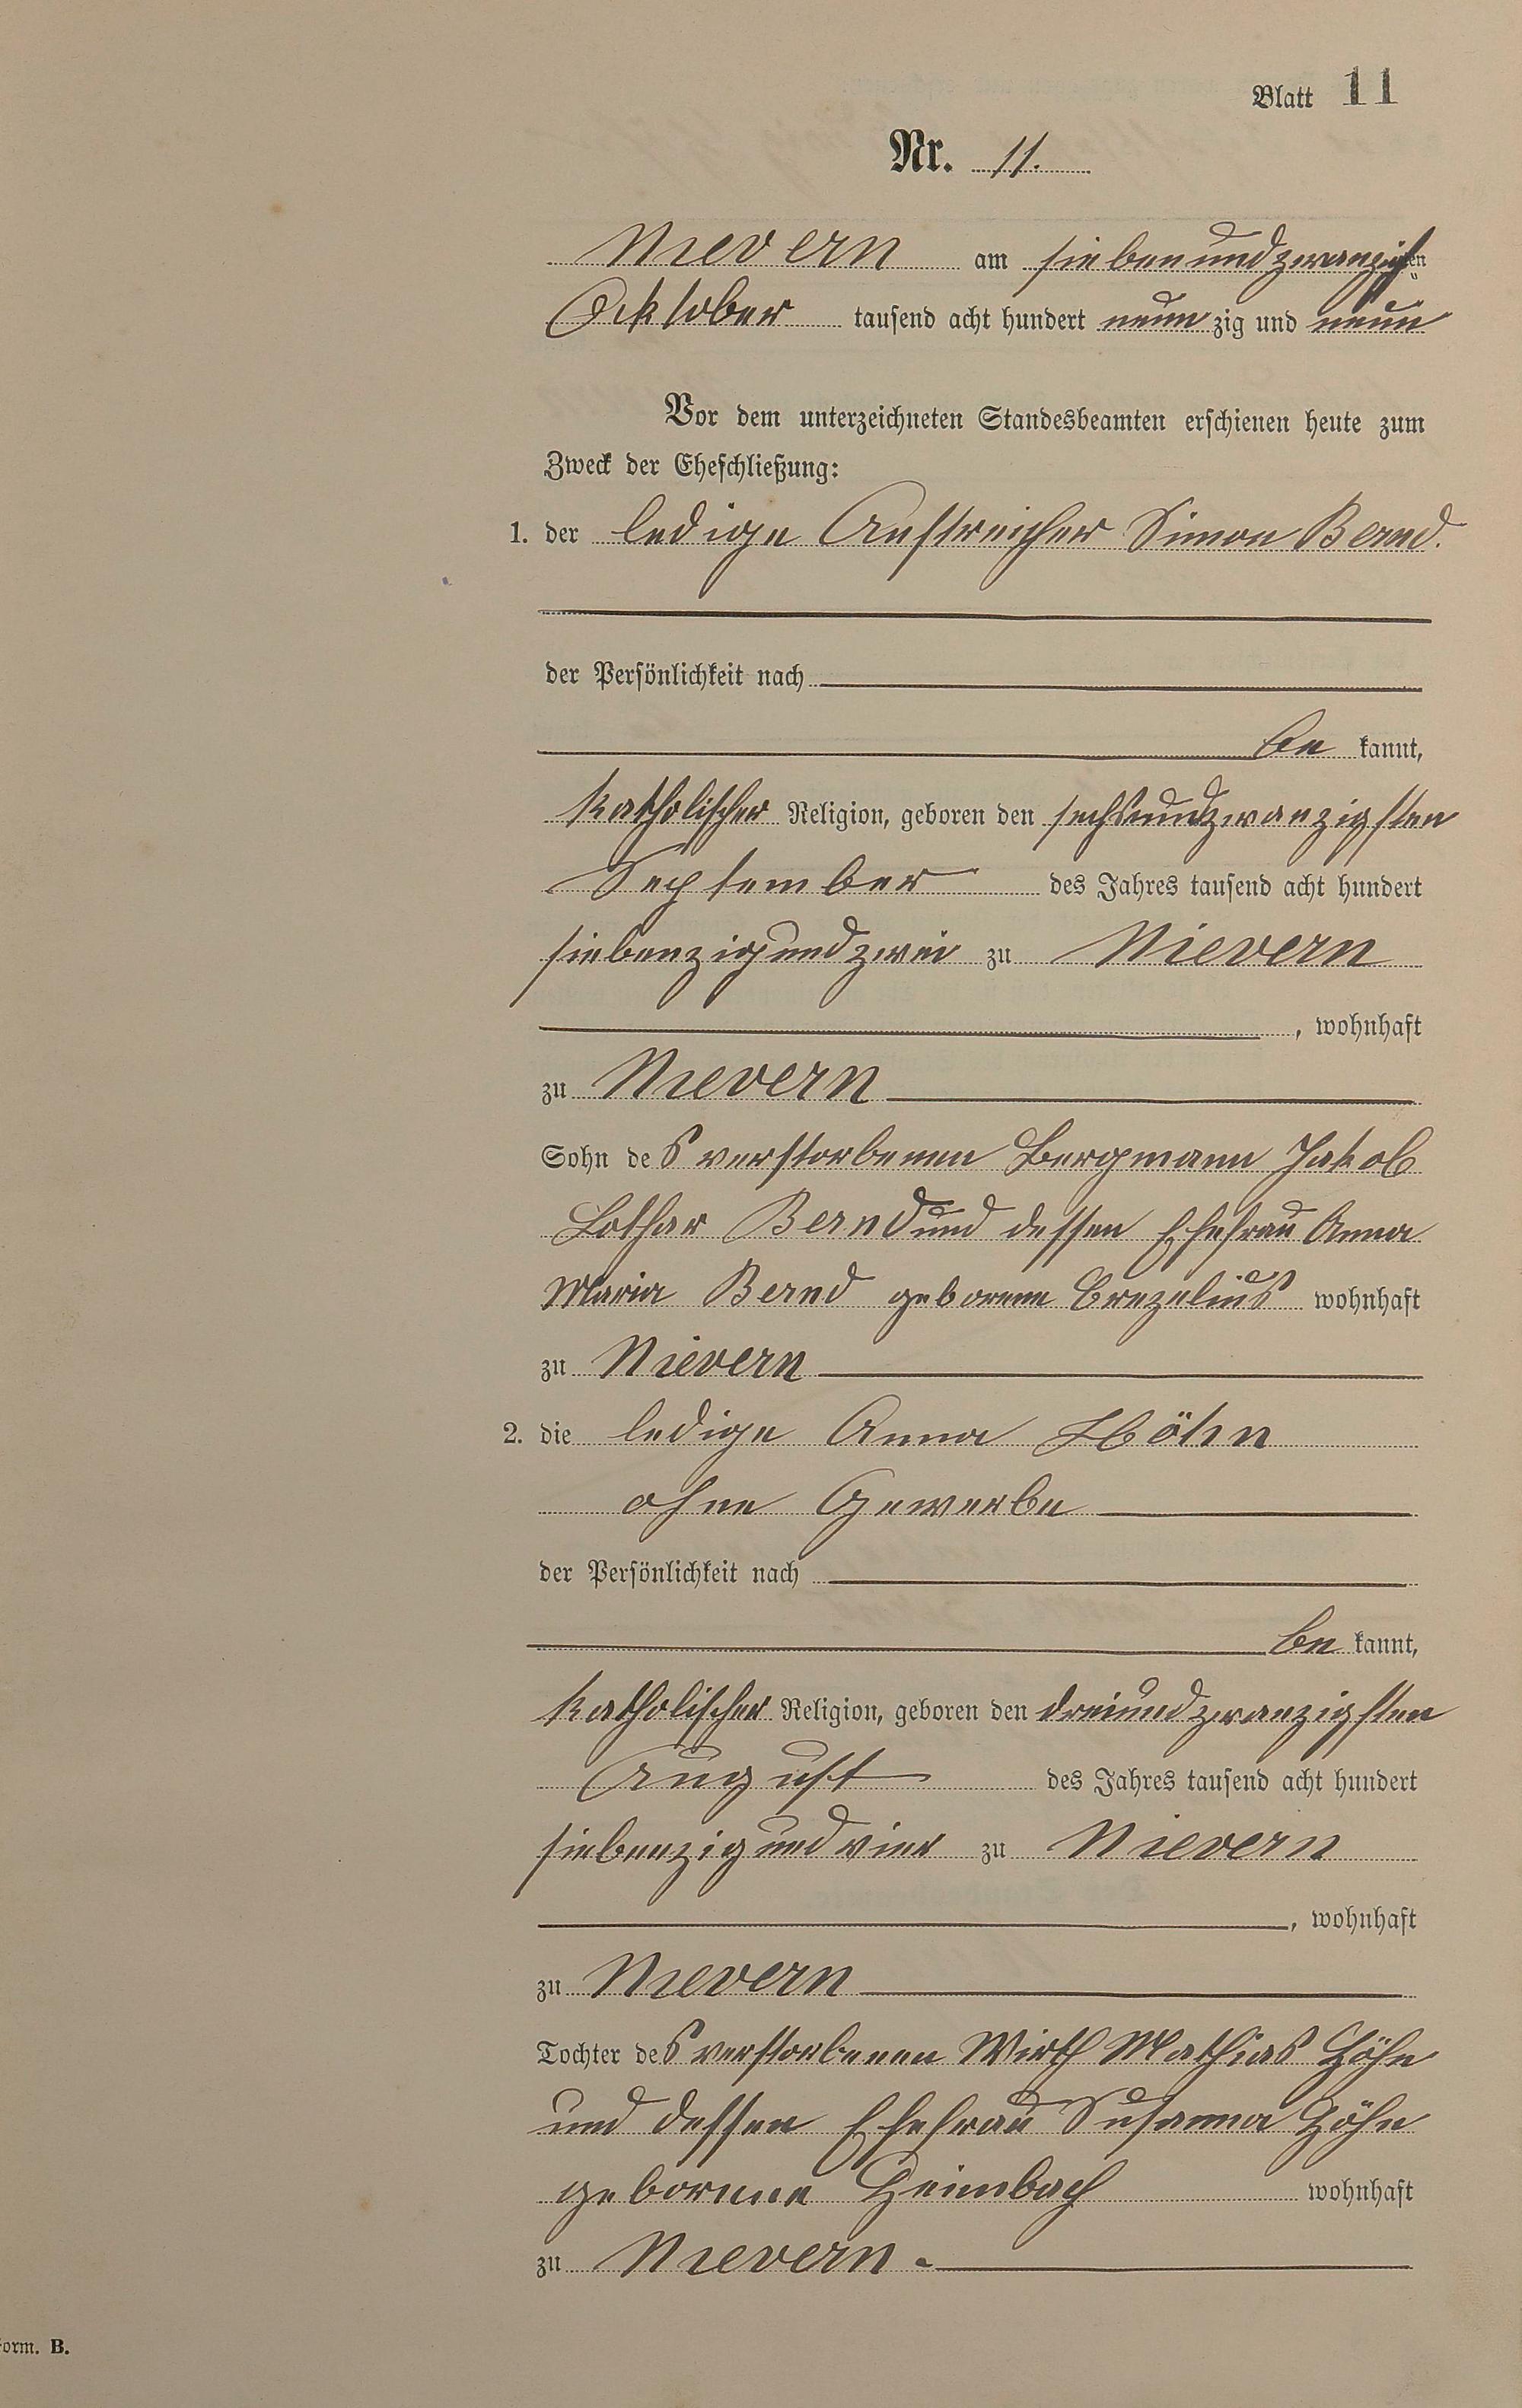 Blatt 11
Nr. 11.
Nievern am siebenundzwanzigsten
Oktober tausend acht hundert neun zig und neun
Vor dem unterzeichneten Standesbeamten erschienen heute zum
Zweck der Eheschließung:
1. der ledige Anstreicher Simon Bernd.
der Persönlichkeit nach
be kannt,
katholischer Religion, geboren den sechsundzwanzigsten
September des Jahres tausend acht hundert
siebenzigundzwei zu Nievern
, wohnhaft
zu Nievern
Sohn des verstorbenen Bergmann Jakob
Lothar Bernd und dessen Ehefrau Anna
Maria Bernd geborene Crezelius wohnhaft
zu Nievern
2. die ledige Anna Höhn
ohne Gewerbe
der Persönlichkeit nach
be kannt,
katholischer Religion, geboren den dreiundzwanzigsten
August des Jahres tausend acht hundert
siebenzigundvier zu Nievern
, wohnhaft
zu Nievern
Tochter des verstorbenen Wirth Mathias Höhn
und dessen Ehefrau Susanna Höhn
geborene Heimbach wohnhaft
zu Nievern.
orm. B.